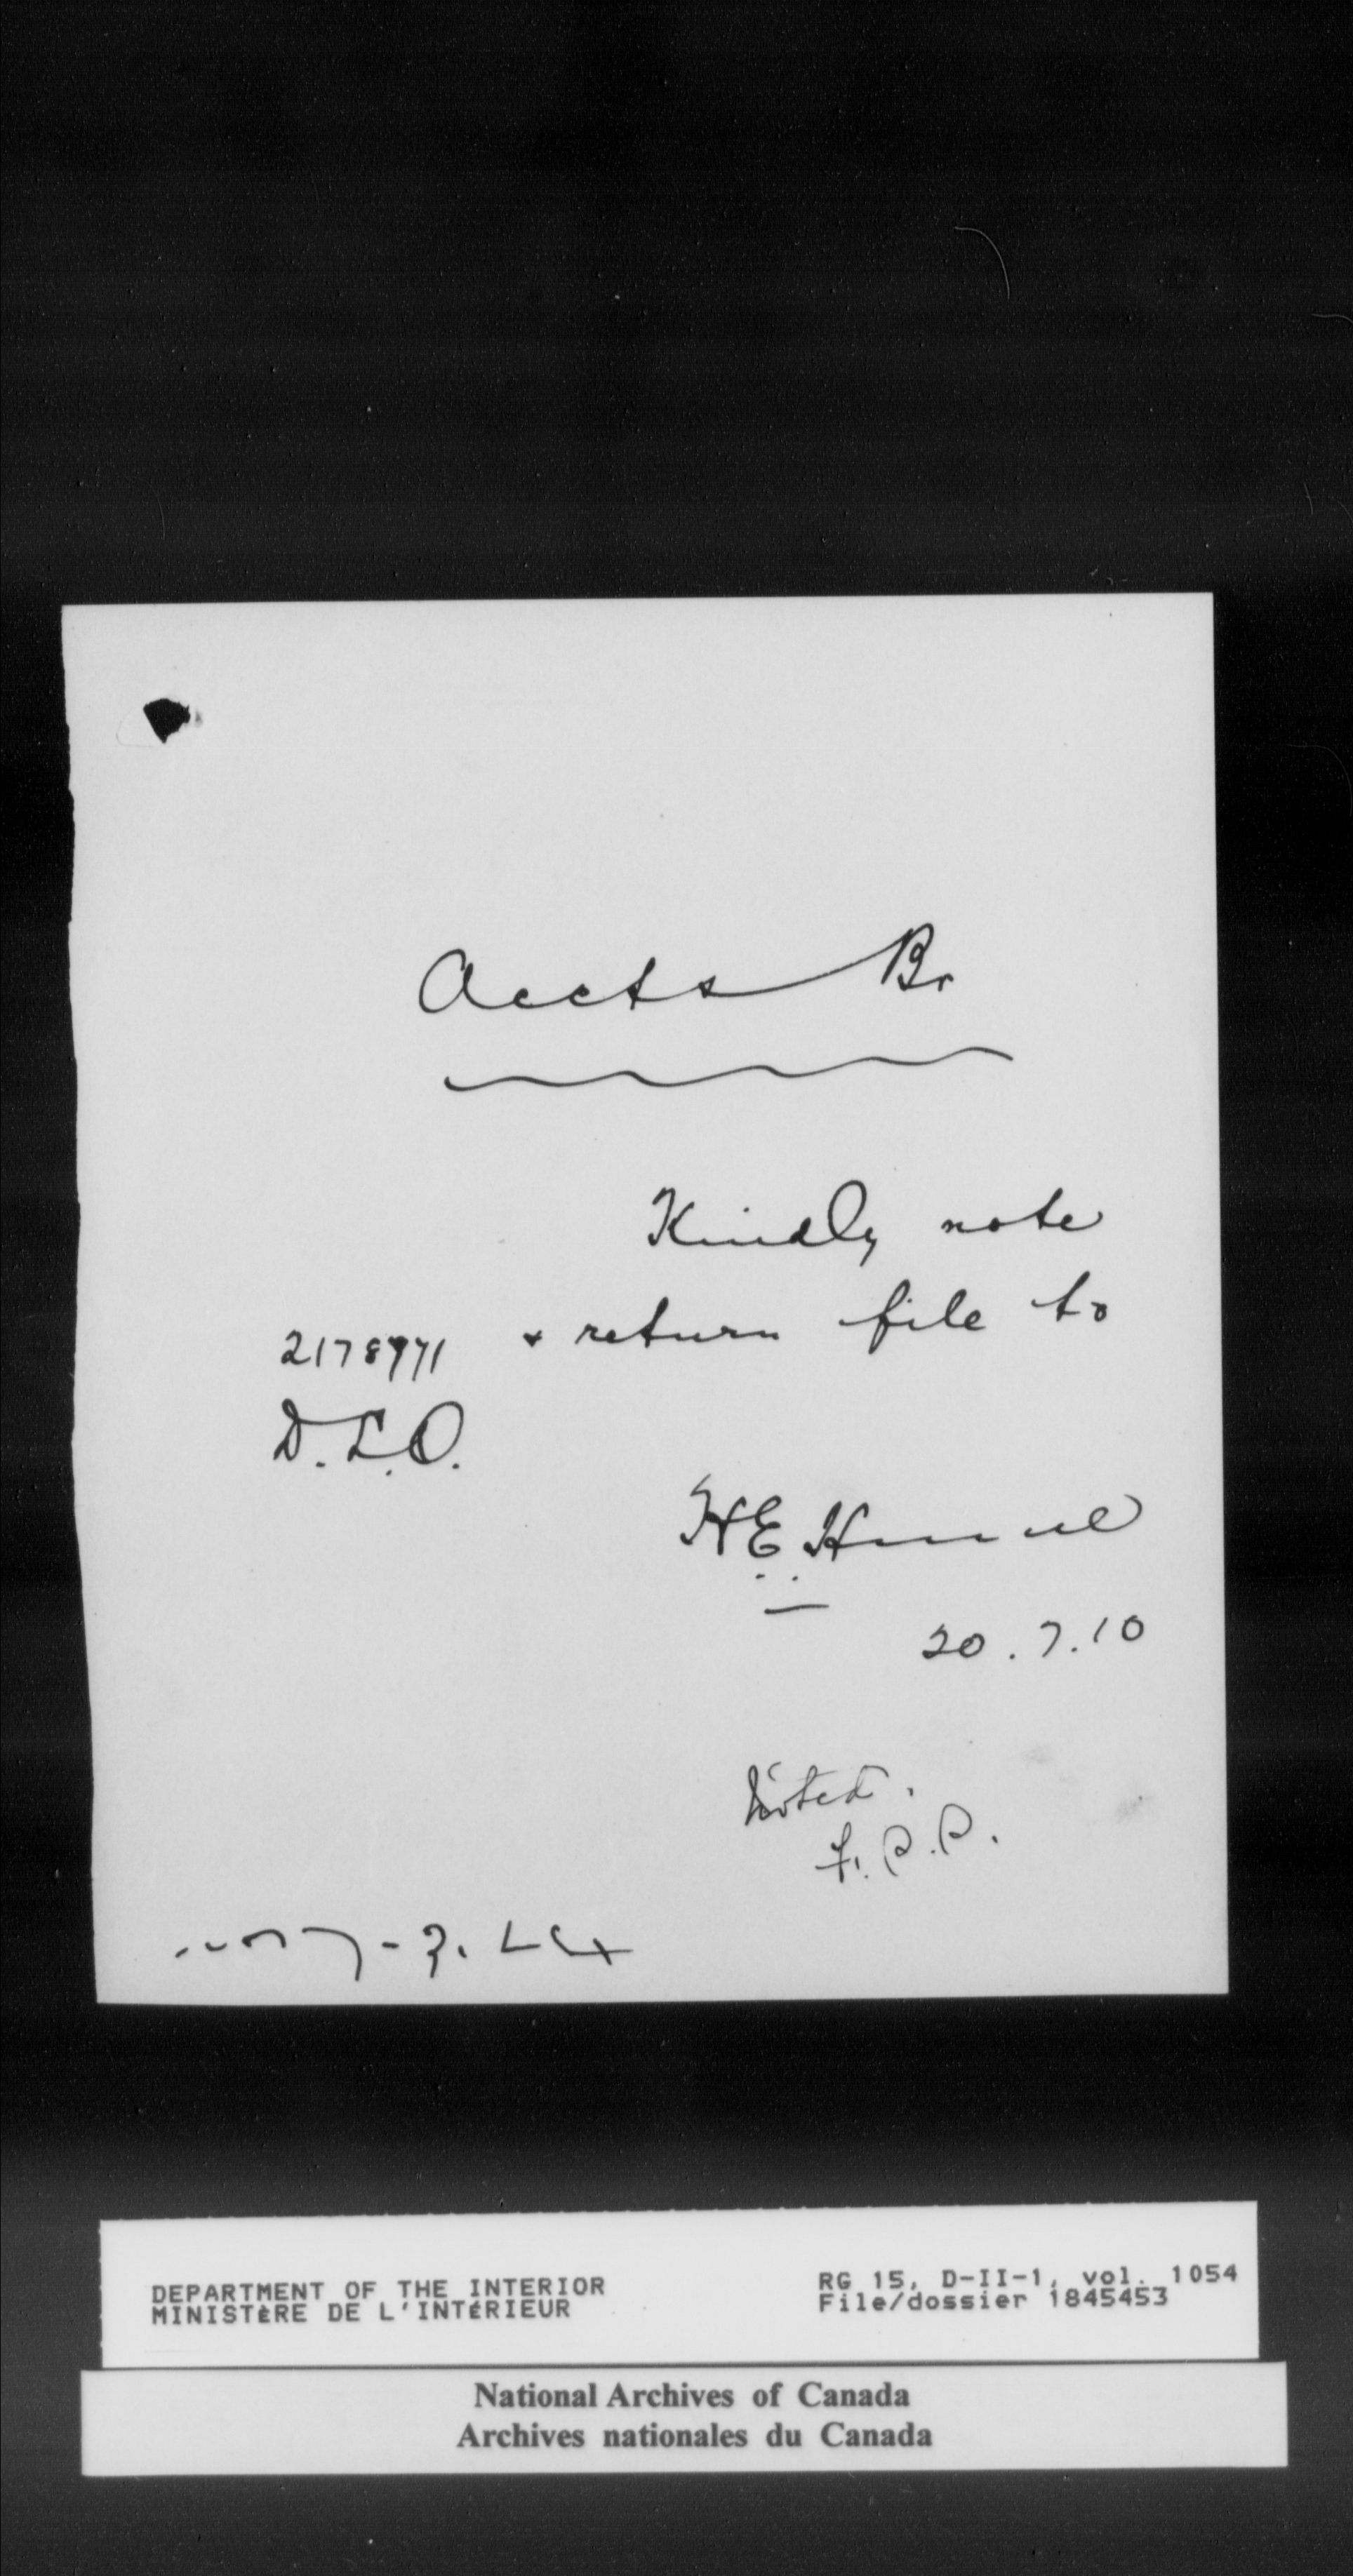 Accts Br
Kindly note
2178971 & return file to
D.L.O.
H.E. Hume
20.7.10
Noted.
F.P.P.
DEPARTMENT OF THE INTERIOR
MINISTÈRE DE L'INTÉRIEUR
RG 15, D-II-1, vol. 1054
File/dossier 1845453
National Archives of Canada
Archives nationales du Canada